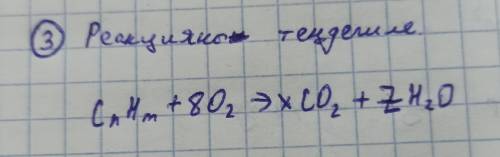 ③ Реакцияны теңдеңіңіз.
CₙHₘ + 8O₂ → xCO₂ + ZH₂O